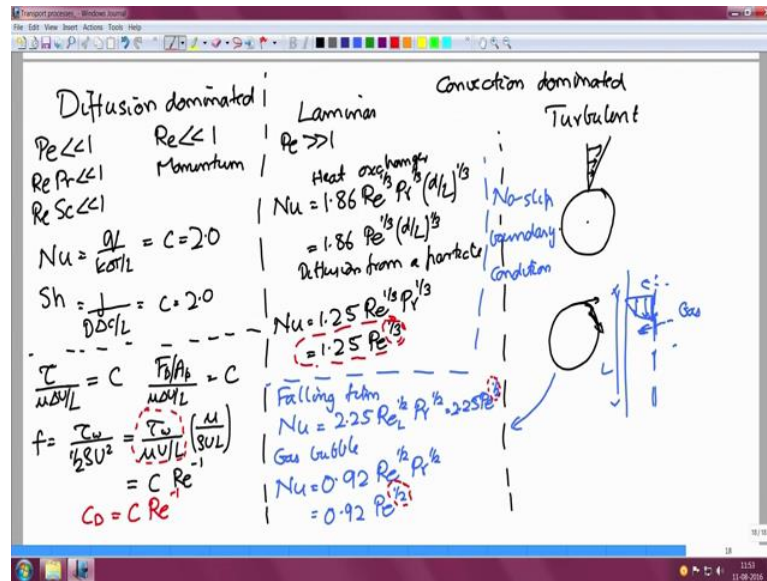 Transport processes_ - Windows Journal
File Edit View Insert Actions Tools Help
Diffusion dominated
Pe<<1 Re<<1
RePr<<1 Momentum
ReSc<<1
Nu = q/(kΔT/L) = C = 2.0
Sh = j/(DΔc/L) = C = 2.0
τ/(μΔU/L) = C (F_D/A_p)/(μΔU/L) = C
f = τ_w/(½ρU²) = τ_w/(μU/L) (μ/ρUL)
= C Re^-1
C_D = C Re^-1
Convection dominated
Laminar
Pe>>1
Heat exchanger
Nu = 1.86 Re^1/3 Pr^1/3 (d/L)^1/3
= 1.86 Pe^1/3 (d/L)^1/3
Diffusion from a particle
Nu = 1.25 Re^1/3 Pr^1/3
= 1.25 Pe^1/3
Falling film
Nu = 2.25 Re_L^1/2 Pr^1/2 = 2.25 Pe^1/2
Gas bubble
Nu = 0.92 Re^1/2 Pr^1/2
= 0.92 Pe^1/2
No-slip
boundary
Condition
Turbulent
Gas
L
18/18
18
11:53
11-08-2016